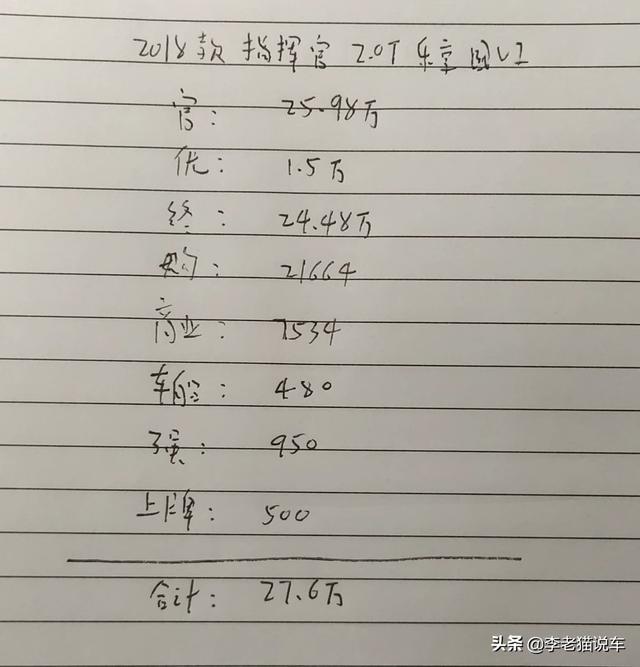 2018款 指挥官 2.0T 乐享 国VI
官: 25.98万
优: 1.5万
终: 24.48万
购: 21664
商业: 7534
车船: 480
强: 950
上牌: 500
合计: 27.6万
头条 @李老猫说车